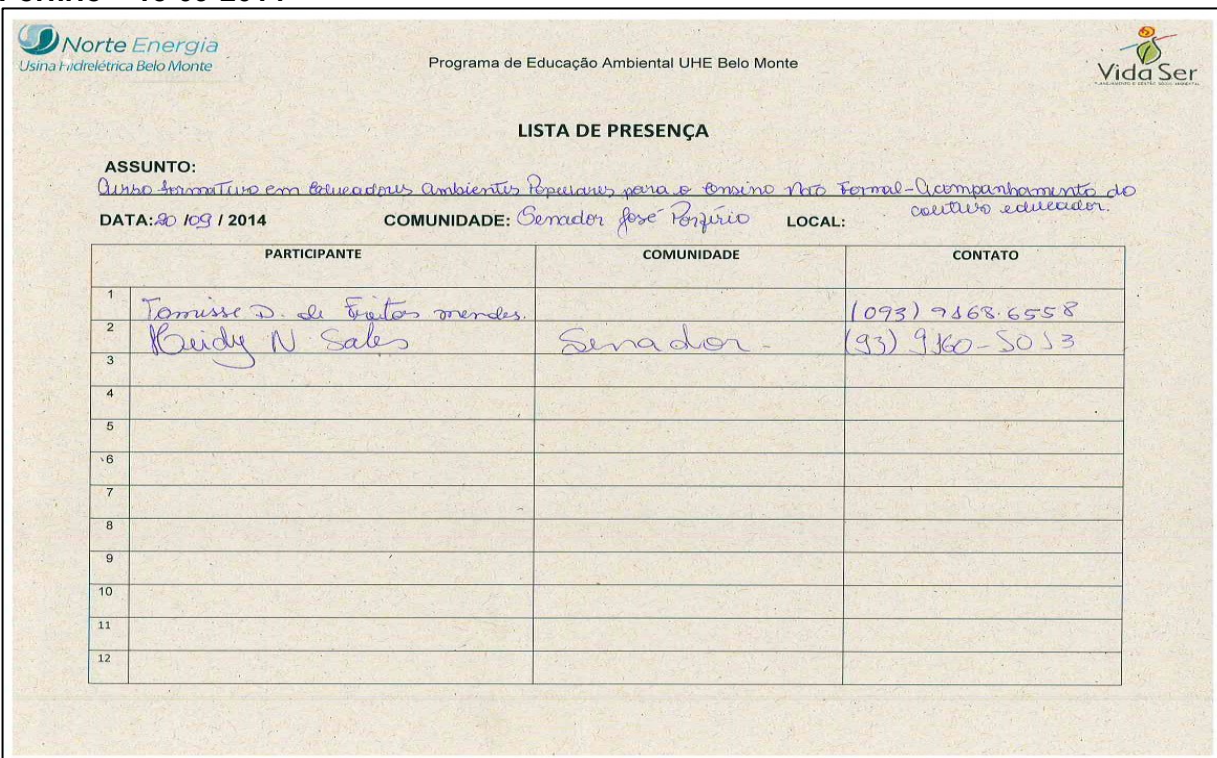 Norte Energia
Usina Hidrelétrica Belo Monte
Programa de Educação Ambiental UHE Belo Monte
Vida Ser
LISTA DE PRESENÇA
ASSUNTO:
Curso formativo em Educadores Ambientis Populares para o Ensino Não Formal - Acompanhamento do
coletivo educador.
DATA: 20 / 09 / 2014 COMUNIDADE: Senador José Porfírio LOCAL:
PARTICIPANTE COMUNIDADE CONTATO
1 D. de Freitas mendes. (093) 9168.6558
2 N Sales Senador - (93) 9160-5013
3
4
5
6
7
8
9
10
11
12